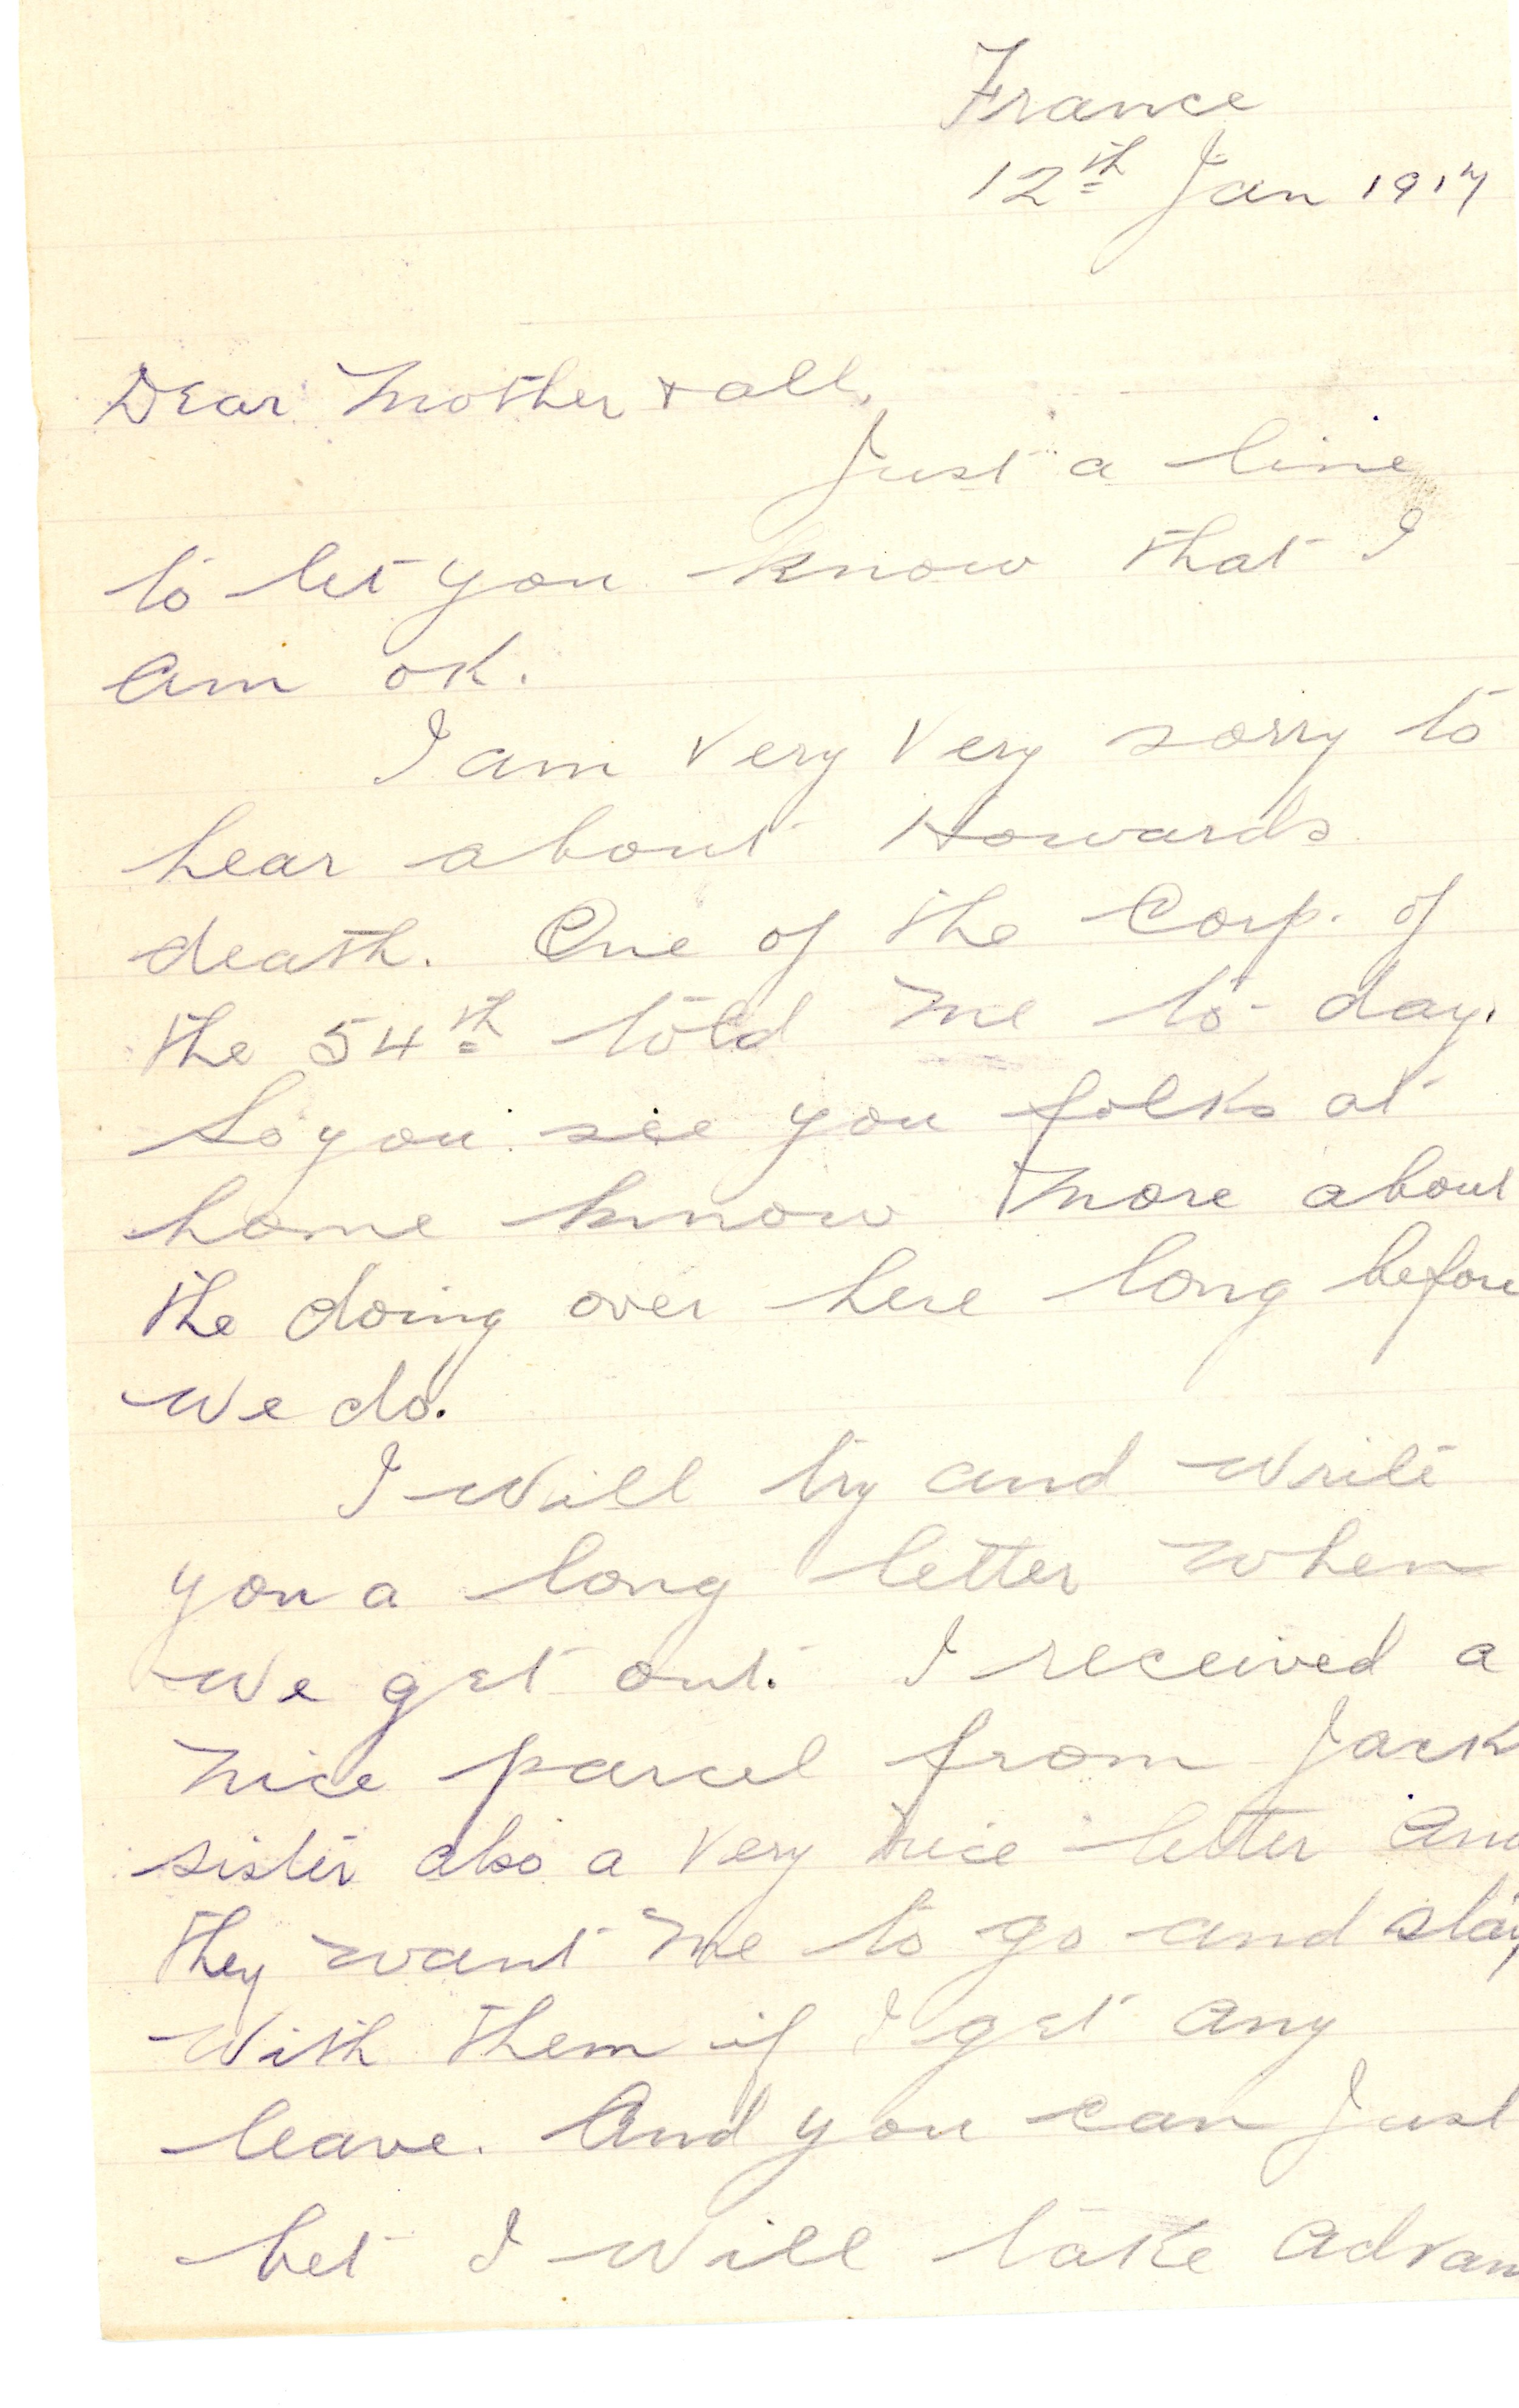 France
12th Jan 1917
Dear Mother + all,
Just a line
to let you know that I
am ok.
I am very very sorry to
hear about Howards
death. One of the Corp. of
the 54th told me to-day.
So you see you folks at
home know more about
the doing over here long before
we do.
I will try and write
you a long letter when
we get out. I received a
nice parcel from Jack
sister also a very nice letter and
they want me to go and stay
with them if I get any
leave. And you can just
bet I will take advan